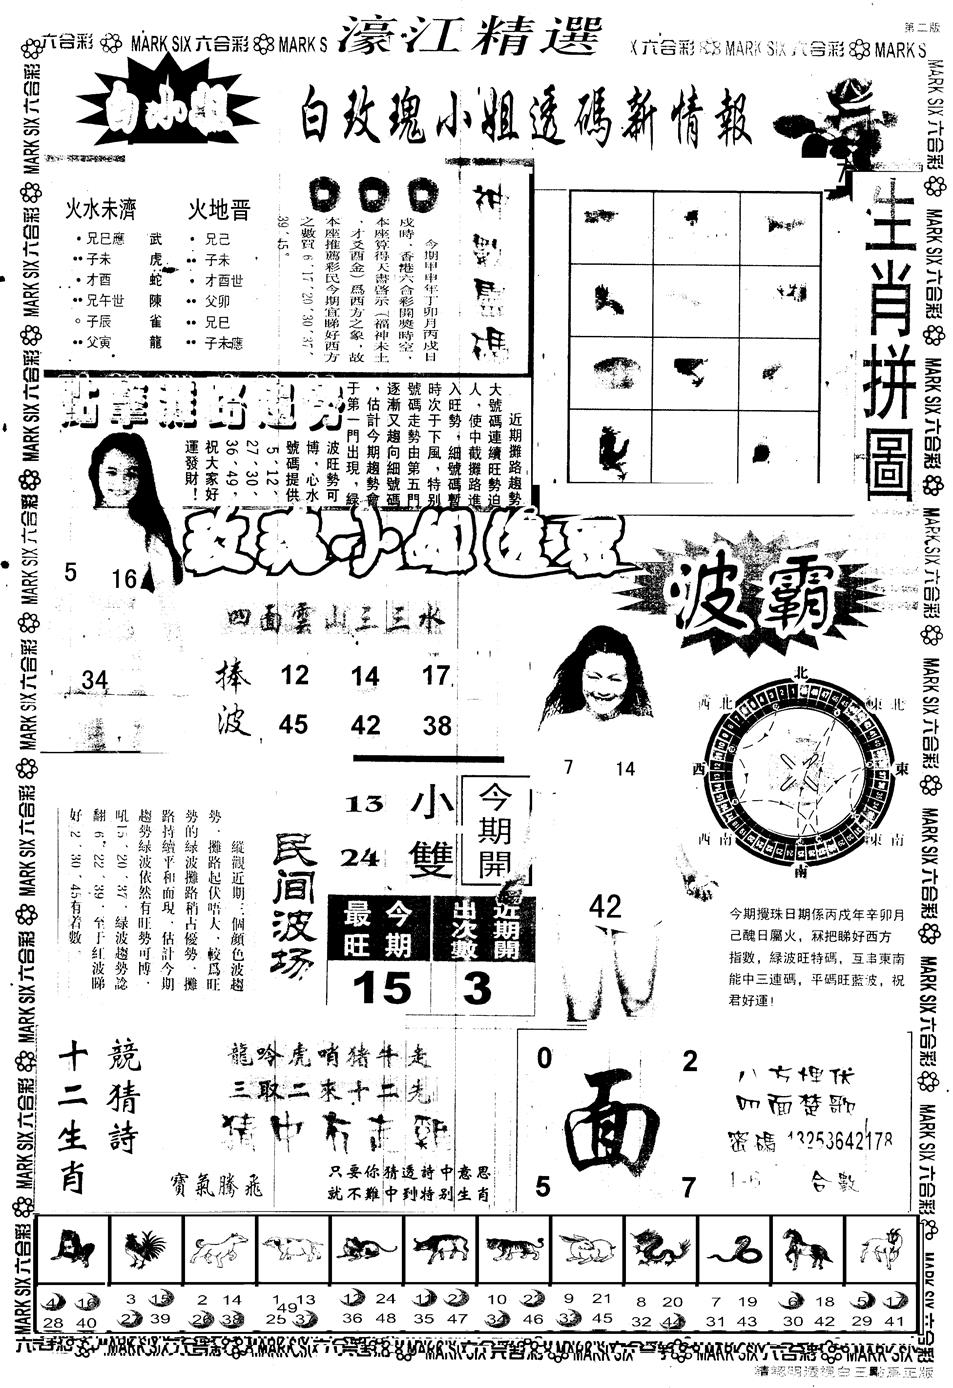 濠江精選
第二版
六合彩 MARK SIX 六合彩 MARK S
X 六合彩 MARK SIX 六合彩 MARK S
白小姐
白玫瑰小姐透碼新情報
火水未濟
火地晋
兄巳應 武 兄己
子未 虎 子未
才酉 蛇 才酉世
兄午世 陳 父卯
子辰 雀 兄巳
父寅 龍 子未應
今期甲申年丁卯月丙戌日
戌時,香港六合彩開獎時空,
本座算得天書啓示(福神未土
,才爻酉金)爲西方之象,故
本座推薦彩民今期宜睇好西方
之數買6.17.20.30.37.
39.45。
生肖拼圖
點擊攤路趨勢
近期攤路趨勢
大號碼連續旺勢迫
人,使中截攤路進
入旺勢,細號碼暫
時次于下風,特别
號碼走勢由第五門
逐漸又趨向細號碼
,估計今期趨勢會
于第一門出現,綠
波旺勢可
博,心水
號碼提供
5.12.
27.30.
36.49,
祝大家好
運發財!
5 16
34
四面雲山三三水
捧波
12 14 17
45 42 38
波霸
7 14
42
北
西北 東北
西 東
西南 東南
南
今期攪珠日期係丙戌年辛卯月
己醜日屬火,冧把睇好西方
指數,緑波旺特碼,互串東南
能中三連碼,平碼旺藍波,祝
君好運!
縱觀近期三個顔色波趨
勢,攤路起伏唔人,較爲旺
勢的緑波攤路稍占優勢,攤
路持續平和而現,估計今期
趨勢緑波依然有旺勢可博,
吼15.20.37.緑波趨勢諗
翻6.22.39.至于紅波睇
好2.30.45有着數。
民间波场
今期開
小雙
13
24
今期最旺
近期開出次數
15
3
十二生肖
競猜詩
龍吟虎哨猪牛走
三取二來十二先
猜中有走
寶氣騰飛
只要你猜透詩中意思
就不難中到特别生肖
0 2
面
5 7
八方埋伏
四面楚歌
密碼 13253642178
1-6 合數
4 16 3 15 2 14 1 13 12 24 11 23 10 22 9 21 8 20 7 19 6 18 5 17
49
28 40 27 39 26 38 25 37 36 48 35 47 34 46 33 45 32 44 31 43 30 42 29 41
請認明透視白三點爲正版